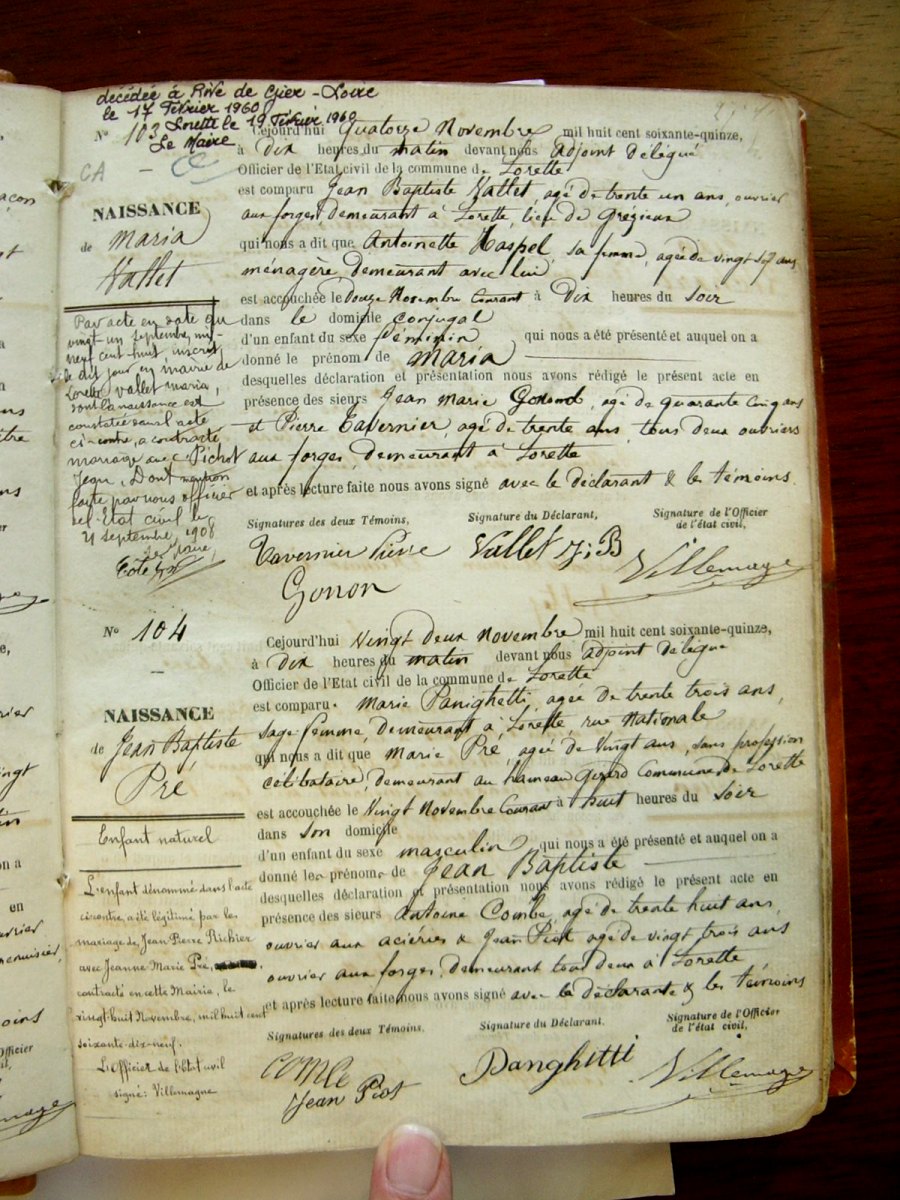 décédée à Rive de Gier - Loire
le 17 Février 1960
Lorette le 19 Février 1960
Le Maire
N° 103
CA
NAISSANCE
de Maria
Vallet
Par acte en date du
vingt un septembre mil
neuf cent huit, inscrit
le dit jour en mairie de
Lorette, Vallet Maria,
dont la naissance est
constatée dans l'acte
ci-contre, a contracté
mariage avec Pichot
Jean. Dont mention
faite par nous officier
de l'Etat civil le
21 septembre 1908
Le Maire,
Cejourd'hui quatorze Novembre mil huit cent soixante-quinze,
à dix heures du matin devant nous adjoint délégué
Officier de l'Etat civil de la commune de Lorette
est comparu Jean Baptiste Vallet, agé de trente un ans, ouvrier
aux forges, demeurant à Lorette, lieu de Grézieux
qui nous a dit que Antoinette Haspel, sa femme, agée de vingt sept ans
ménagère, demeurant avec lui
est accouchée le Douze Novembre Courant à Dix heures du soir
dans le domicile conjugal
d'un enfant du sexe féminin qui nous a été présenté et auquel on a
donné le prénom de Maria
desquelles déclaration et présentation nous avons rédigé le présent acte en
présence des sieurs Jean Marie Gonond, agé de quarante cinq ans
et Pierre Tavernier, agé de trente ans, tous deux ouvriers
aux forges, demeurant à Lorette
et après lecture faite nous avons signé avec le déclarant & les témoins.
Signatures des deux Témoins, Signature du Déclarant, Signature de l'Officier
de l'état civil,
Tavernier Pierre Vallet J:B Villemagne
Gonon
N° 104
NAISSANCE
de Jean Baptiste
Pré
Enfant naturel
L'enfant dénommé dans l'acte
cicontre, a été légitimé par le
mariage de Jean Pierre Richier
avec Jeanne Marie Pré,
contracté en cette Mairie, le
vingt huit Novembre, mil huit cent
soixante-dix-neuf.
L'Officier de l'état civil
signé: Villemagne
Cejourd'hui Vingt deux Novembre mil huit cent soixante-quinze,
à dix heures du matin devant nous adjoint délégué
Officier de l'Etat civil de la commune de Lorette
est comparu Marie Panighetti, agée de trente trois ans,
sage femme, demeurant à Lorette, rue Nationale
qui nous a dit que Marie Pré, agée de Vingt ans, sans profession
célibataire, demeurant au hameau Gérard Commune de Lorette
est accouchée le Vingt Novembre Courant à huit heures du Soir
dans son domicile
d'un enfant du sexe masculin qui nous a été présenté et auquel on a
donné les prénoms de Jean Baptiste
desquelles déclaration et présentation nous avons rédigé le présent acte en
présence des sieurs Antoine Combe, agé de trente huit ans,
ouvrier aux aciéries & Jean Piot agé de vingt trois ans
ouvrier aux forges, demeurant tous deux à Lorette
et après lecture faite nous avons signé avec la déclarante & les témoins
Signatures des deux Témoins. Signature du Déclarant. Signature de l'Officier
de l'état civil,
Combe Panghitti Villemagne
Jean Piot